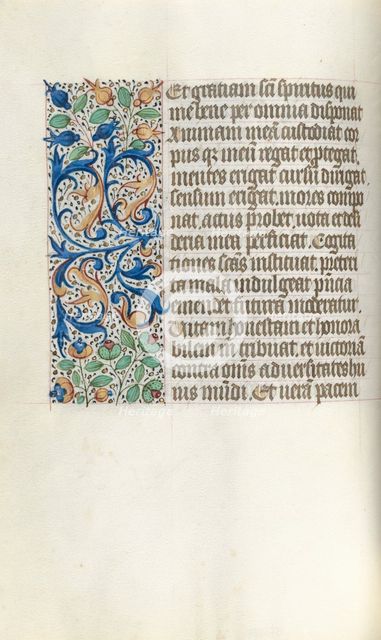 Et gratiam sc̄i spiritus qui
me bene per omnia disponat
Animam meā custodiat cor
pus qz meū regat et protegat,
mentes erigat cursū dirigat
sensum erigat, mores compo
nat, actus probet, uota et desi
deria mea perficiat. Cogita
tiones sc̄as instituat, preteri
ta mala indulgeat p̄ntia
emendet et futura moderetur.
Vitam honestam et honora
bilem m̄ tribuat, et uictoriā
contra om̄s aduersitates hu
ius mūdi. Et uerā pacem
Heritage
Heritage